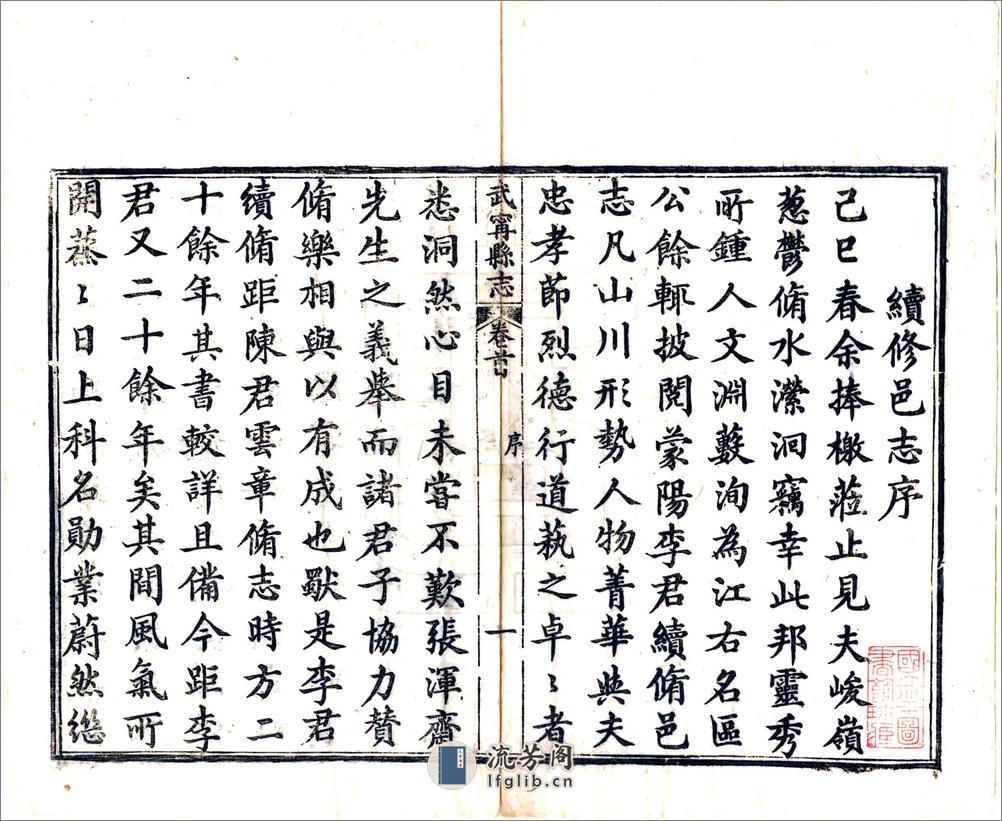 續修邑志序
己巳春余捧檄蒞止見夫峻嶺
蔥鬱脩水濚洄竊幸此邦靈秀
所鍾人文淵藪洵為江右名區
公餘輒披閱蒙陽李君續脩邑
志凡山川形勢人物菁華與夫
忠孝節烈德行道蓺之卓〻者
武甯縣志
卷首
序
一
悉洞然心目未嘗不歎張渾齋
先生之義舉而諸君子協力贊
脩樂相與以有成也獸是李君
續脩距陳君雲章脩志時方二
十餘年其書較詳且備今距李
君又二十餘年矣其間風氣所
開蒸〻日上科名勛業蔚然繼
流芳阁
lfglib.cn